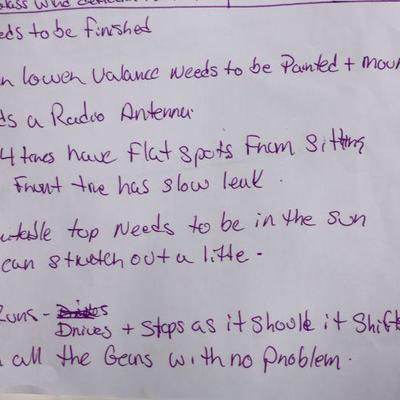 eds to be finished
n lower valance needs to be Painted + moun
ds a Radio Antenna.
4 tires have flat spots from sitting
Front tire has slow leak.
top needs to be in the sun
can stretch out a little.
Runs - Drives + stops as it should it shift
all the Gears with no problem.